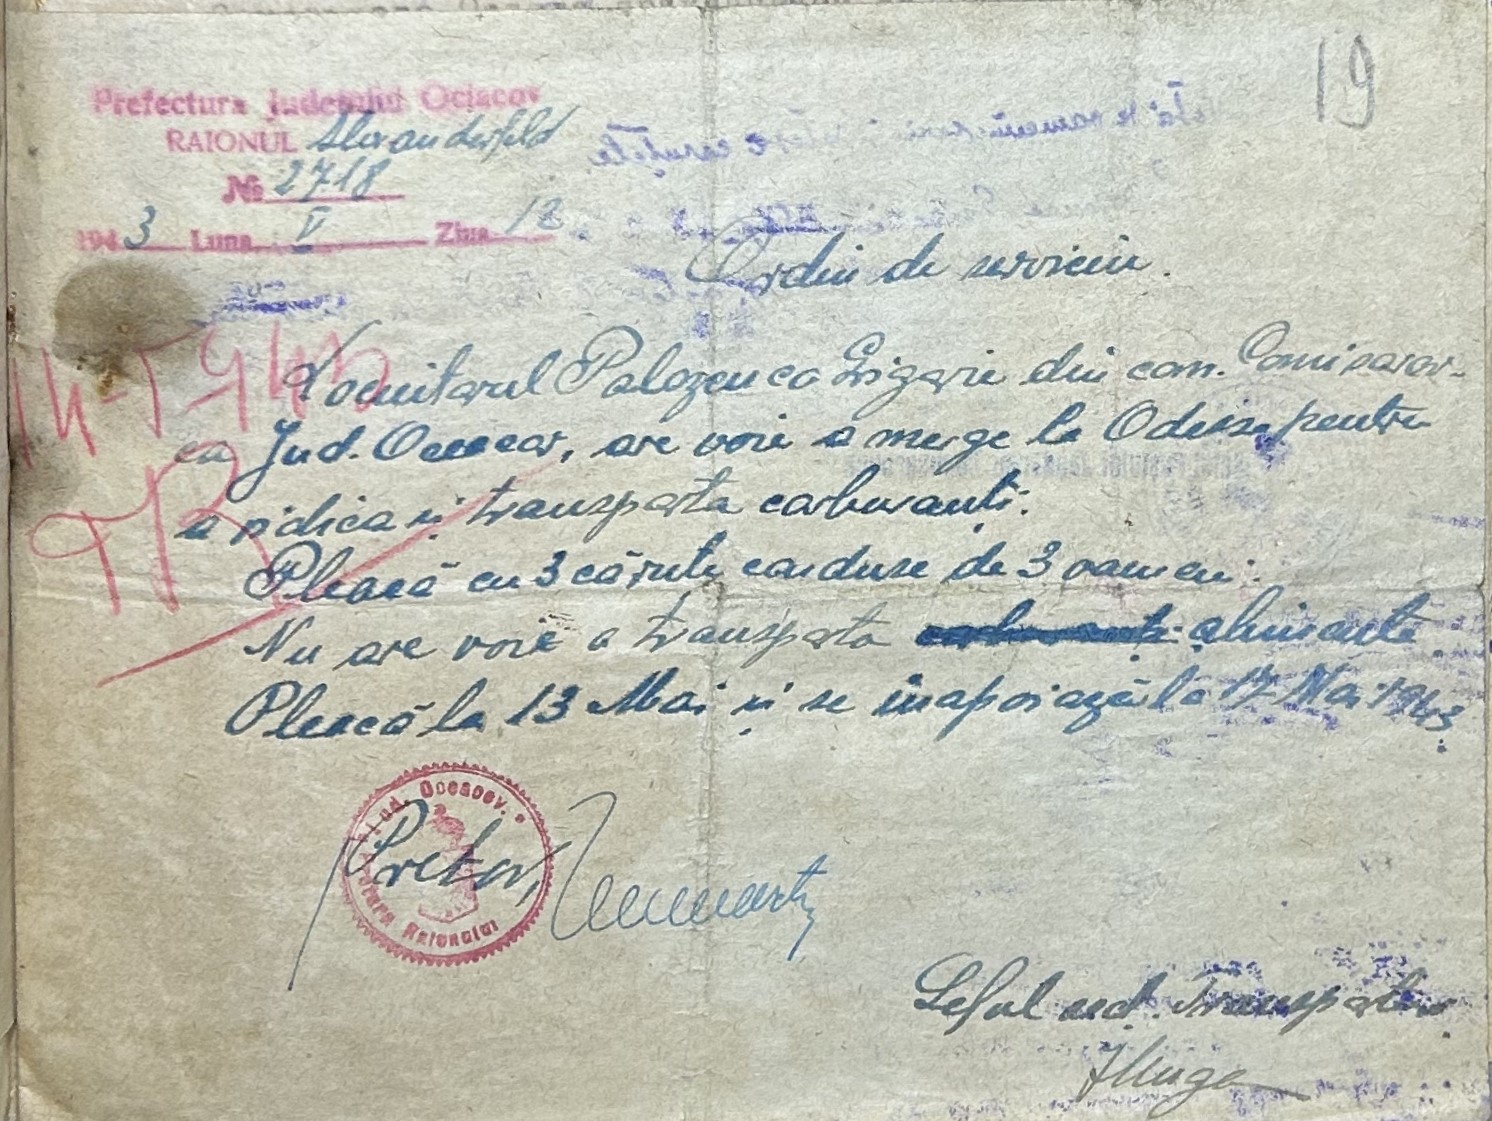 19
Prefectura Județului Ociacov
RAIONUL Alexanderfeld
№ 2718
1943 Luna V Ziua 12
Ordin de serviciu.
Locuitorul Polozenco Grigorie din com. Comisarov-
ca Jud. Oceacov, are voie a merge la Odessa pentru
a ridica și transporta carburanți.
Pleacă cu 3 căruțe conduse de 3 oameni.
Nu are voie a transporta alimente.
Pleacă la 13 Mai și se înapoiază la 17 Mai 1943
14-V-943
Jud. Oceacov.
Pretura Raionului
Pretor,
Șeful sect. Transporturi